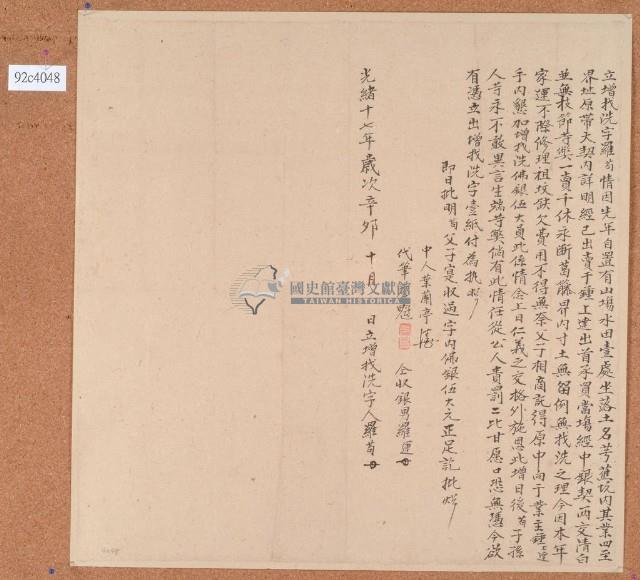 92c4048
立增找洗字羅苟情因先年自置有山塲水田壹處坐落土名芎蕉坑內其業四至
界址原帶大契內詳明經已出賣于鍾上達出首承買當塲經中銀契两交清白
並無枝節等獘一賣千休永断葛藤界內寸土無留例無找洗之理今因本年
家運不際修理祖坟缺欠費用不得無奈父子相商託得原中向于業主鍾運
手內懇加增找洗佛銀伍大員此係情念上日仁義之交格外施恩此增日後苟子孫
人等永不敢異言生端等獘倘有此情任從公人責罰二比甘愿口恐無憑今欲
有憑立出增找洗字壹紙付為执炤
即日批明苟父子寔收過字內佛銀伍大元正足訖批炤
中人葉蘭亭
代筆
仝收銀男羅運
光緒十七年歲次辛夘十月 日立增找洗字人羅苟
國史館臺灣文獻館
TAIWAN HISTORICA